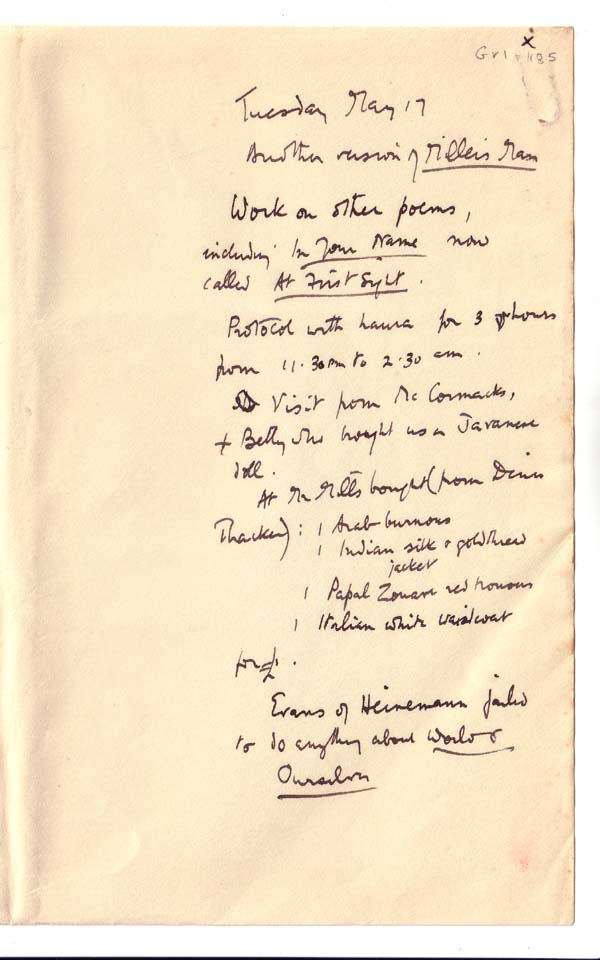 x
Gr1-1185
Tuesday May 17
Another version of Miller's Man
Work on other poems,
including In Your Name now
called At First Sight.
Protocol with Laura for 3 hours
from 11.30 pm to 2.30 am.
Visit from McCormacks,
+ Betty who brought us a Javanese
doll.
At Mr Mott's bought (from Denis
Thacker): 1 Arab burnous
1 Indian silk & goldthread
jacket
1 Papal Zouave red trousers
1 Italian white waistcoat
for £1.
Evans of Heinemann failed
to do anything about World &
Ourselves